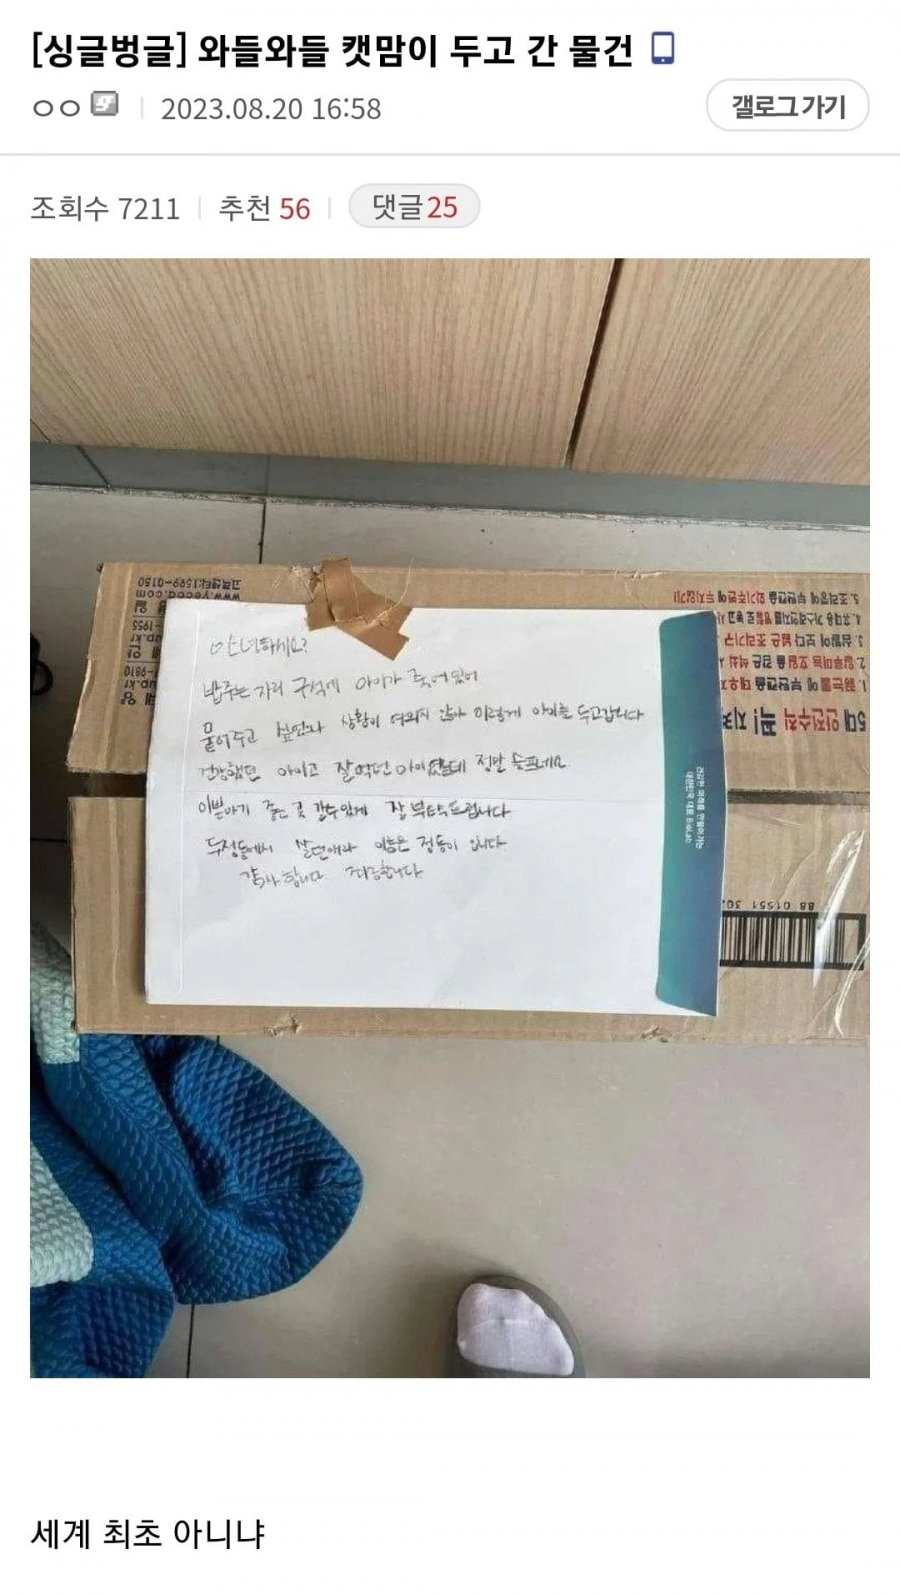 [싱글벙글] 와들와들 캣맘이 두고 간 물건
ㅇㅇ
2023.08.20 16:58
갤로그 가기
조회수 7211
추천 56
댓글 25
고객센터:1599-0180
안녕하세요?
밥주는 자리 구석에 아이가 죽어있어
묻어주고 싶었으나 상황이 여의치 않아 이렇게 아이를 두고갑니다
건강했던 아이고 잘먹던 아이였는데 정말 슬프네요
이쁜아기 좋은 곳 갈수있게 잘 부탁드립니다
두정동에서 살던애라 이름은 정동이 입니다
감사합니다 죄송합니다
5대 안전수칙 꼭! 지
88 01551 30
세계 최초 아니냐